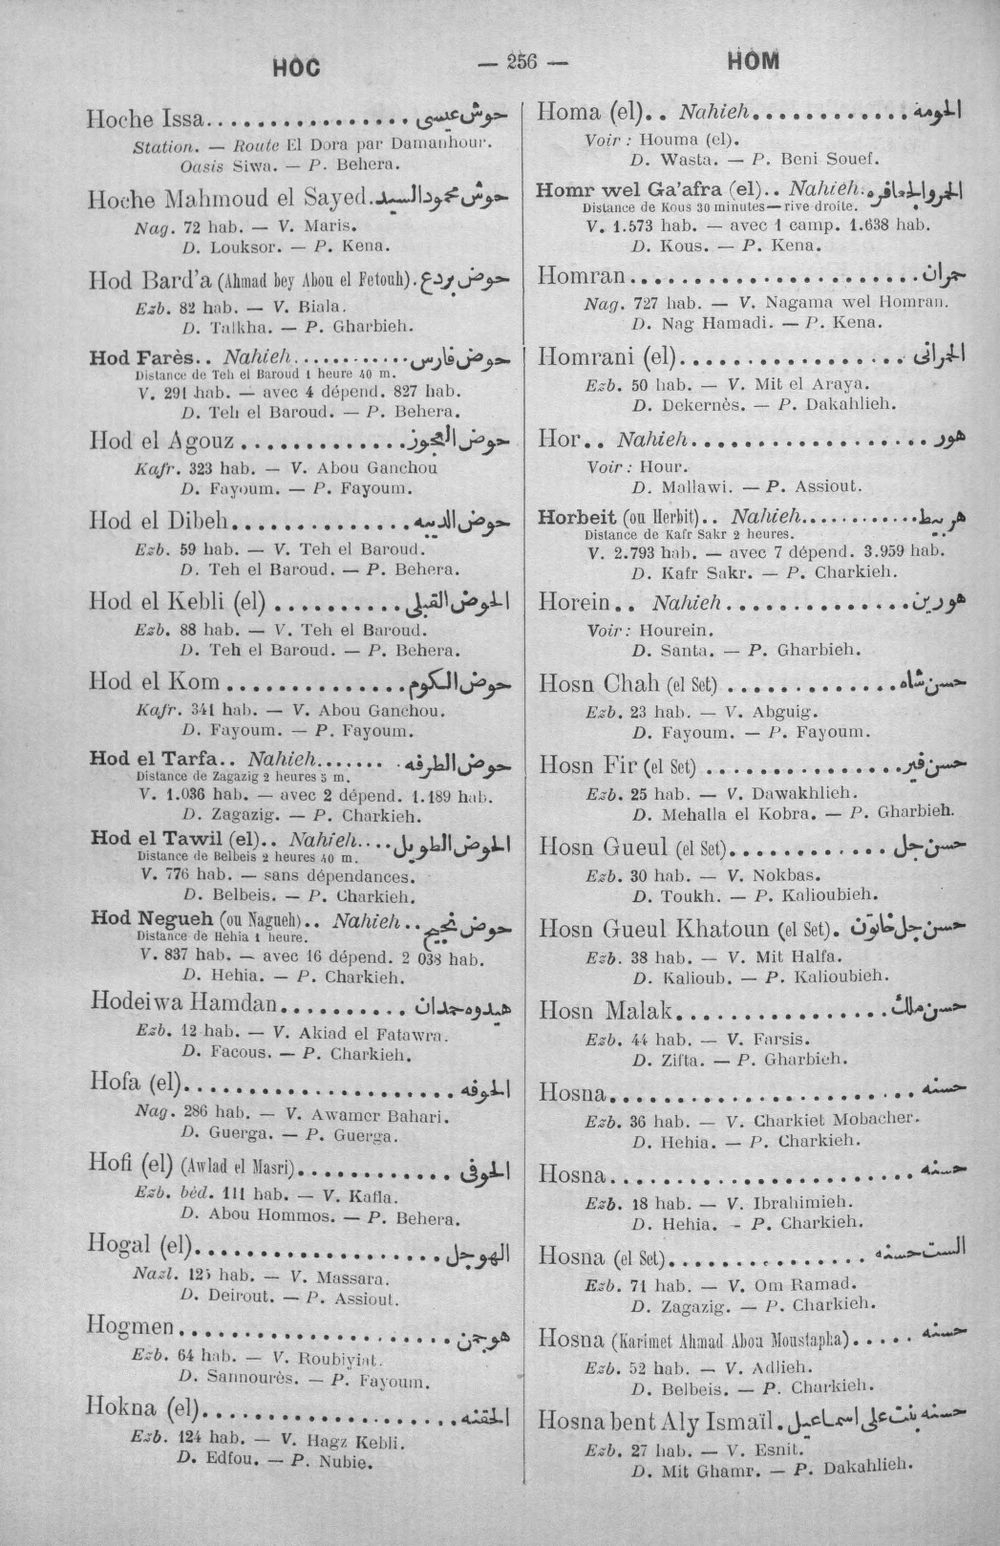 HOC
— 256 —
HOM
Hoche Issa................ حوش عيسى
Station. — Route El Dora par Damanhour.
Oasis Siwa. — P. Behera.
Hoche Mahmoud el Sayed. حوش محمود السيد
Nag. 72 hab. — V. Maris.
D. Louksor. — P. Kena.
Hod Bard'a (Ahmad bey Abou el Fetouh). حوض بردع
Ezb. 82 hab. — V. Biala.
D. Talkha. — P. Gharbieh.
Hod Farès.. Nahieh........... حوض فارس
Distance de Teh el Baroud 1 heure 40 m.
V. 291 hab. — avec 4 dépend. 827 hab.
D. Teh el Baroud. — P. Behera.
Hod el Agouz............. حوض العجوز
Kafr. 323 hab. — V. Abou Ganchou
D. Fayoum. — P. Fayoum.
Hod el Dibeh.............. حوض الديبه
Ezb. 59 hab. — V. Teh el Baroud.
D. Teh el Baroud. — P. Behera.
Hod el Kebli (el) .......... الحوض القبلى
Ezb. 88 hab. — V. Teh el Baroud.
D. Teh el Baroud. — P. Behera.
Hod el Kom .............. حوض الكوم
Kafr. 341 hab. — V. Abou Ganchou.
D. Fayoum. — P. Fayoum.
Hod el Tarfa.. Nahieh........ حوض الطرفه
Distance de Zagazig 2 heures 5 m.
V. 1.036 hab. — avec 2 dépend. 1.189 hab.
D. Zagazig. — P. Charkieh.
Hod el Tawil (el).. Nahieh.... الحوض الطويل
Distance de Belbeis 2 heures 40 m.
V. 776 hab. — sans dépendances.
D. Belbeis. — P. Charkieh.
Hod Negueh (ou Nagueh).. Nahieh.. حوض نجيح
Distance de Hehia 1 heure.
V. 837 hab. — avec 16 dépend. 2 038 hab.
D. Hehia. — P. Charkieh.
Hodeiwa Hamdan.......... هيدوه حمدان
Ezb. 12 hab. — V. Akiad el Fatawra.
D. Facous. — P. Charkieh.
Hofa (el)..................... الحوفه
Nag. 286 hab. — V. Awamer Bahari.
D. Guerga. — P. Guerga.
Hofi (el) (Awlad el Masri)............ الحوفى
Ezb. béd. 111 hab. — V. Kafla.
D. Abou Hommos. — P. Behera.
Hogal (el)................... الهوجل
Nazl. 125 hab. — V. Massara.
D. Deirout. — P. Assiout.
Hogmen..................... هوجمن
Ezb. 64 hab. — V. Roubiyiat.
D. Sannourès. — P. Fayoum.
Hokna (el).................... الحقنه
Ezb. 124 hab. — V. Hagz Kebli.
D. Edfou. — P. Nubie.
Homa (el).. Nahieh............ الحومه
Voir : Houma (el).
D. Wasta. — P. Beni Souef.
Homr wel Ga'afra (el).. Nahieh. الحمر والجعافره
Distance de Kous 30 minutes — rive droite.
V. 1.573 hab. — avec 1 camp. 1.638 hab.
D. Kous. — P. Kena.
Homran...................... حمران
Nag. 727 hab. — V. Nagama wel Homran.
D. Nag Hamadi. — P. Kena.
Homrani (el).................. الحمرانى
Ezb. 50 hab. — V. Mit el Araya.
D. Dekernès. — P. Dakahlieh.
Hor.. Nahieh................... هور
Voir : Hour.
D. Mallawi. — P. Assiout.
Horbeit (ou Herbit).. Nahieh............ هربيط
Distance de Kafr Sakr 2 heures.
V. 2.793 hab. — avec 7 dépend. 3.959 hab.
D. Kafr Sakr. — P. Charkieh.
Horein.. Nahieh............... هورين
Voir : Hourein.
D. Santa. — P. Gharbieh.
Hosn Chah (el Set) ............. حسن شاه
Ezb. 23 hab. — V. Abguig.
D. Fayoum. — P. Fayoum.
Hosn Fir (el Set) ............... حسن فير
Ezb. 25 hab. — V. Dawakhlieh.
D. Mehalla el Kobra. — P. Gharbieh.
Hosn Gueul (el Set)............ حسن جل
Ezb. 30 hab. — V. Nokbas.
D. Toukh. — P. Kalioubieh.
Hosn Gueul Khatoun (el Set). حسن جل خاتون
Ezb. 38 hab. — V. Mit Halfa.
D. Kalioub. — P. Kalioubieh.
Hosn Malak................ حسن ملك
Ezb. 44 hab. — V. Farsis.
D. Zifta. — P. Gharbieh.
Hosna....................... حسنه
Ezb. 36 hab. — V. Charkiet Mobacher.
D. Hehia. — P. Charkieh.
Hosna....................... حسنه
Ezb. 18 hab. — V. Ibrahimieh.
D. Hehia. - P. Charkieh.
Hosna (el Set)................ الست حسنه
Ezb. 71 hab. — V. Om Ramad.
D. Zagazig. — P. Charkieh.
Hosna (Karimet Ahmad Abou Moustapha)..... حسنه
Ezb. 52 hab. — V. Adlieh.
D. Belbeis. — P. Charkieh.
Hosna bent Aly Ismaïl. حسنه بنت على اسماعيل
Ezb. 27 hab. — V. Esnit.
D. Mit Ghamr. — P. Dakahlieh.